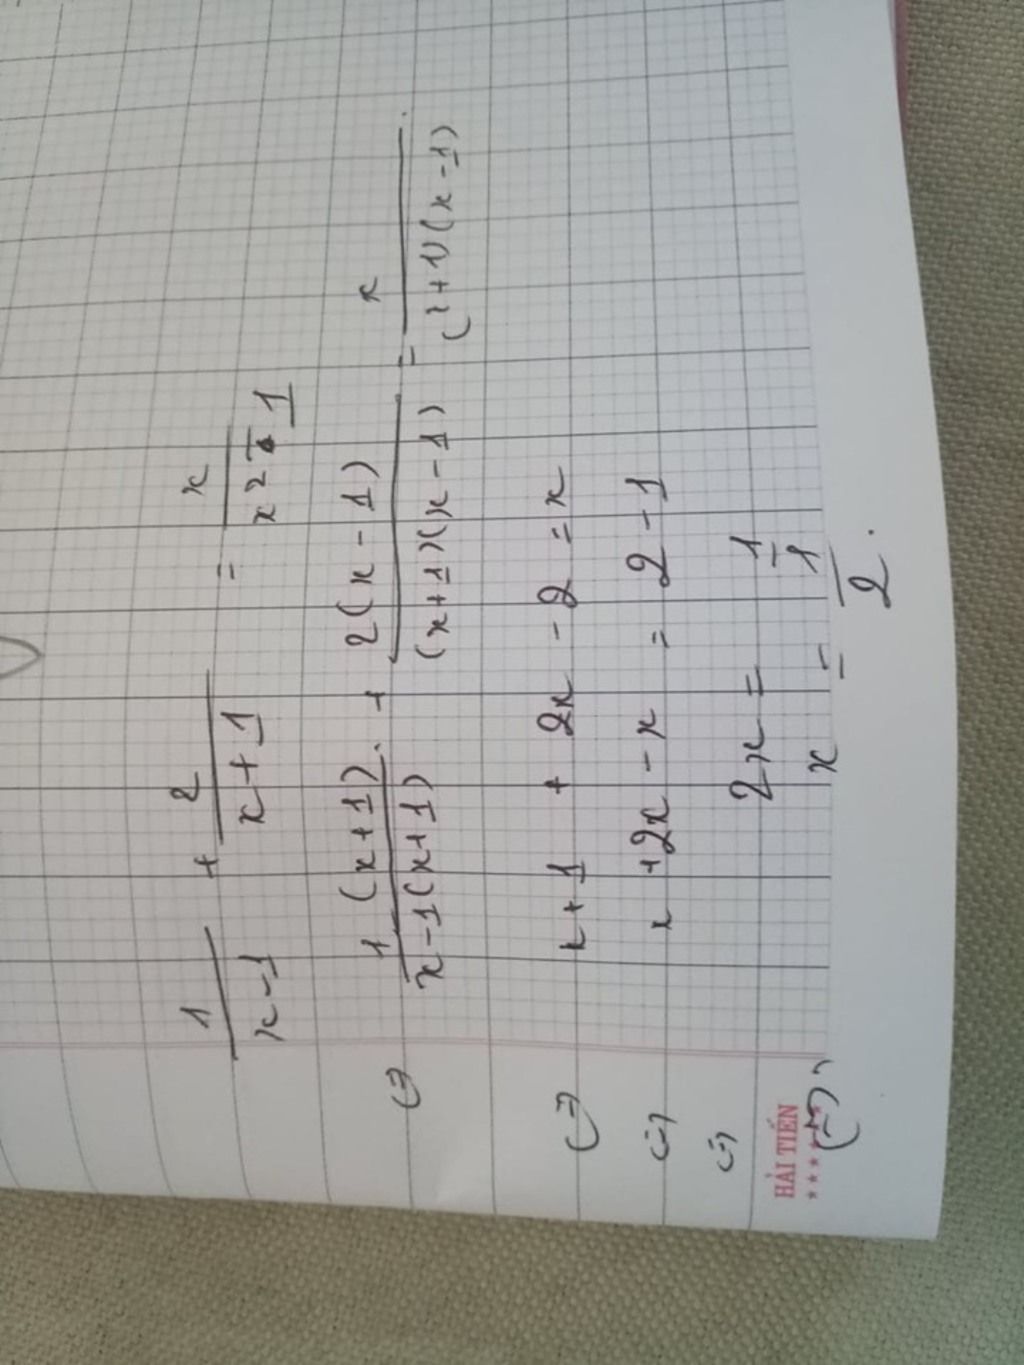 1/(x-1) + 2/(x+1) = x/(x² - 1)
(=) 1(x+1)/x-1(x+1) + 2(x-1)/(x+1)(x-1) = x/(x+1)(x-1)
(=) x+1 + 2x - 2 = x
(=) x +2x - x = 2 - 1
(=) 2x = 1
(=) x = 1/2.
HẢI TIẾN